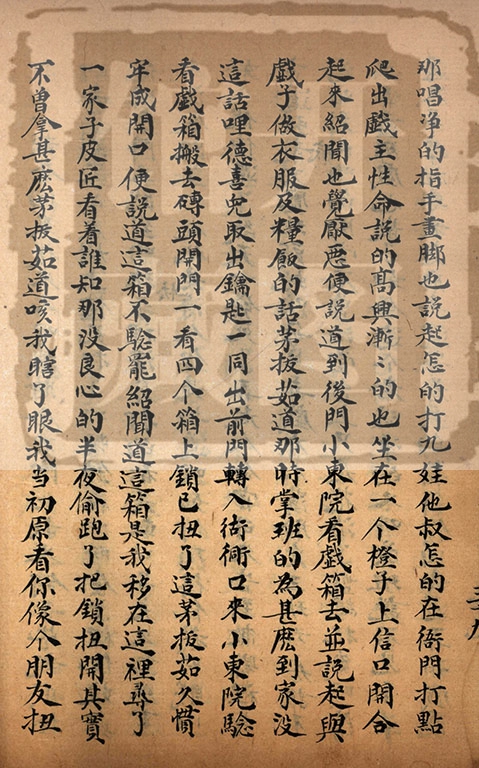 那唱净的指手畫脚也説起怎的打九娃他叔怎的在衙門打點
爬出戯主性命説的髙興漸〻的也坐在一个橙子上信口開合
起來紹聞也覺厭惡便説道到後門小東院看戯箱去並説起與
戯子做衣服及糧飯的話茅拔茹道那時掌班的為甚麽到家没
這話哩德喜兒取出鑰匙一同出前門轉入衚衕口來小東院騐
看戯箱搬去磚頭開門一看四个箱上鎖已扭了這茅拔茹久慣
牢成開口便説道這箱不騐罷紹聞道這箱是我移在這裡尋了
一家子皮匠看着誰知那没良心的半夜偷跑了把鎖扭開其實
不曾拿甚麽茅拔茹道咳我瞎了眼我当初原看你像个朋友扭